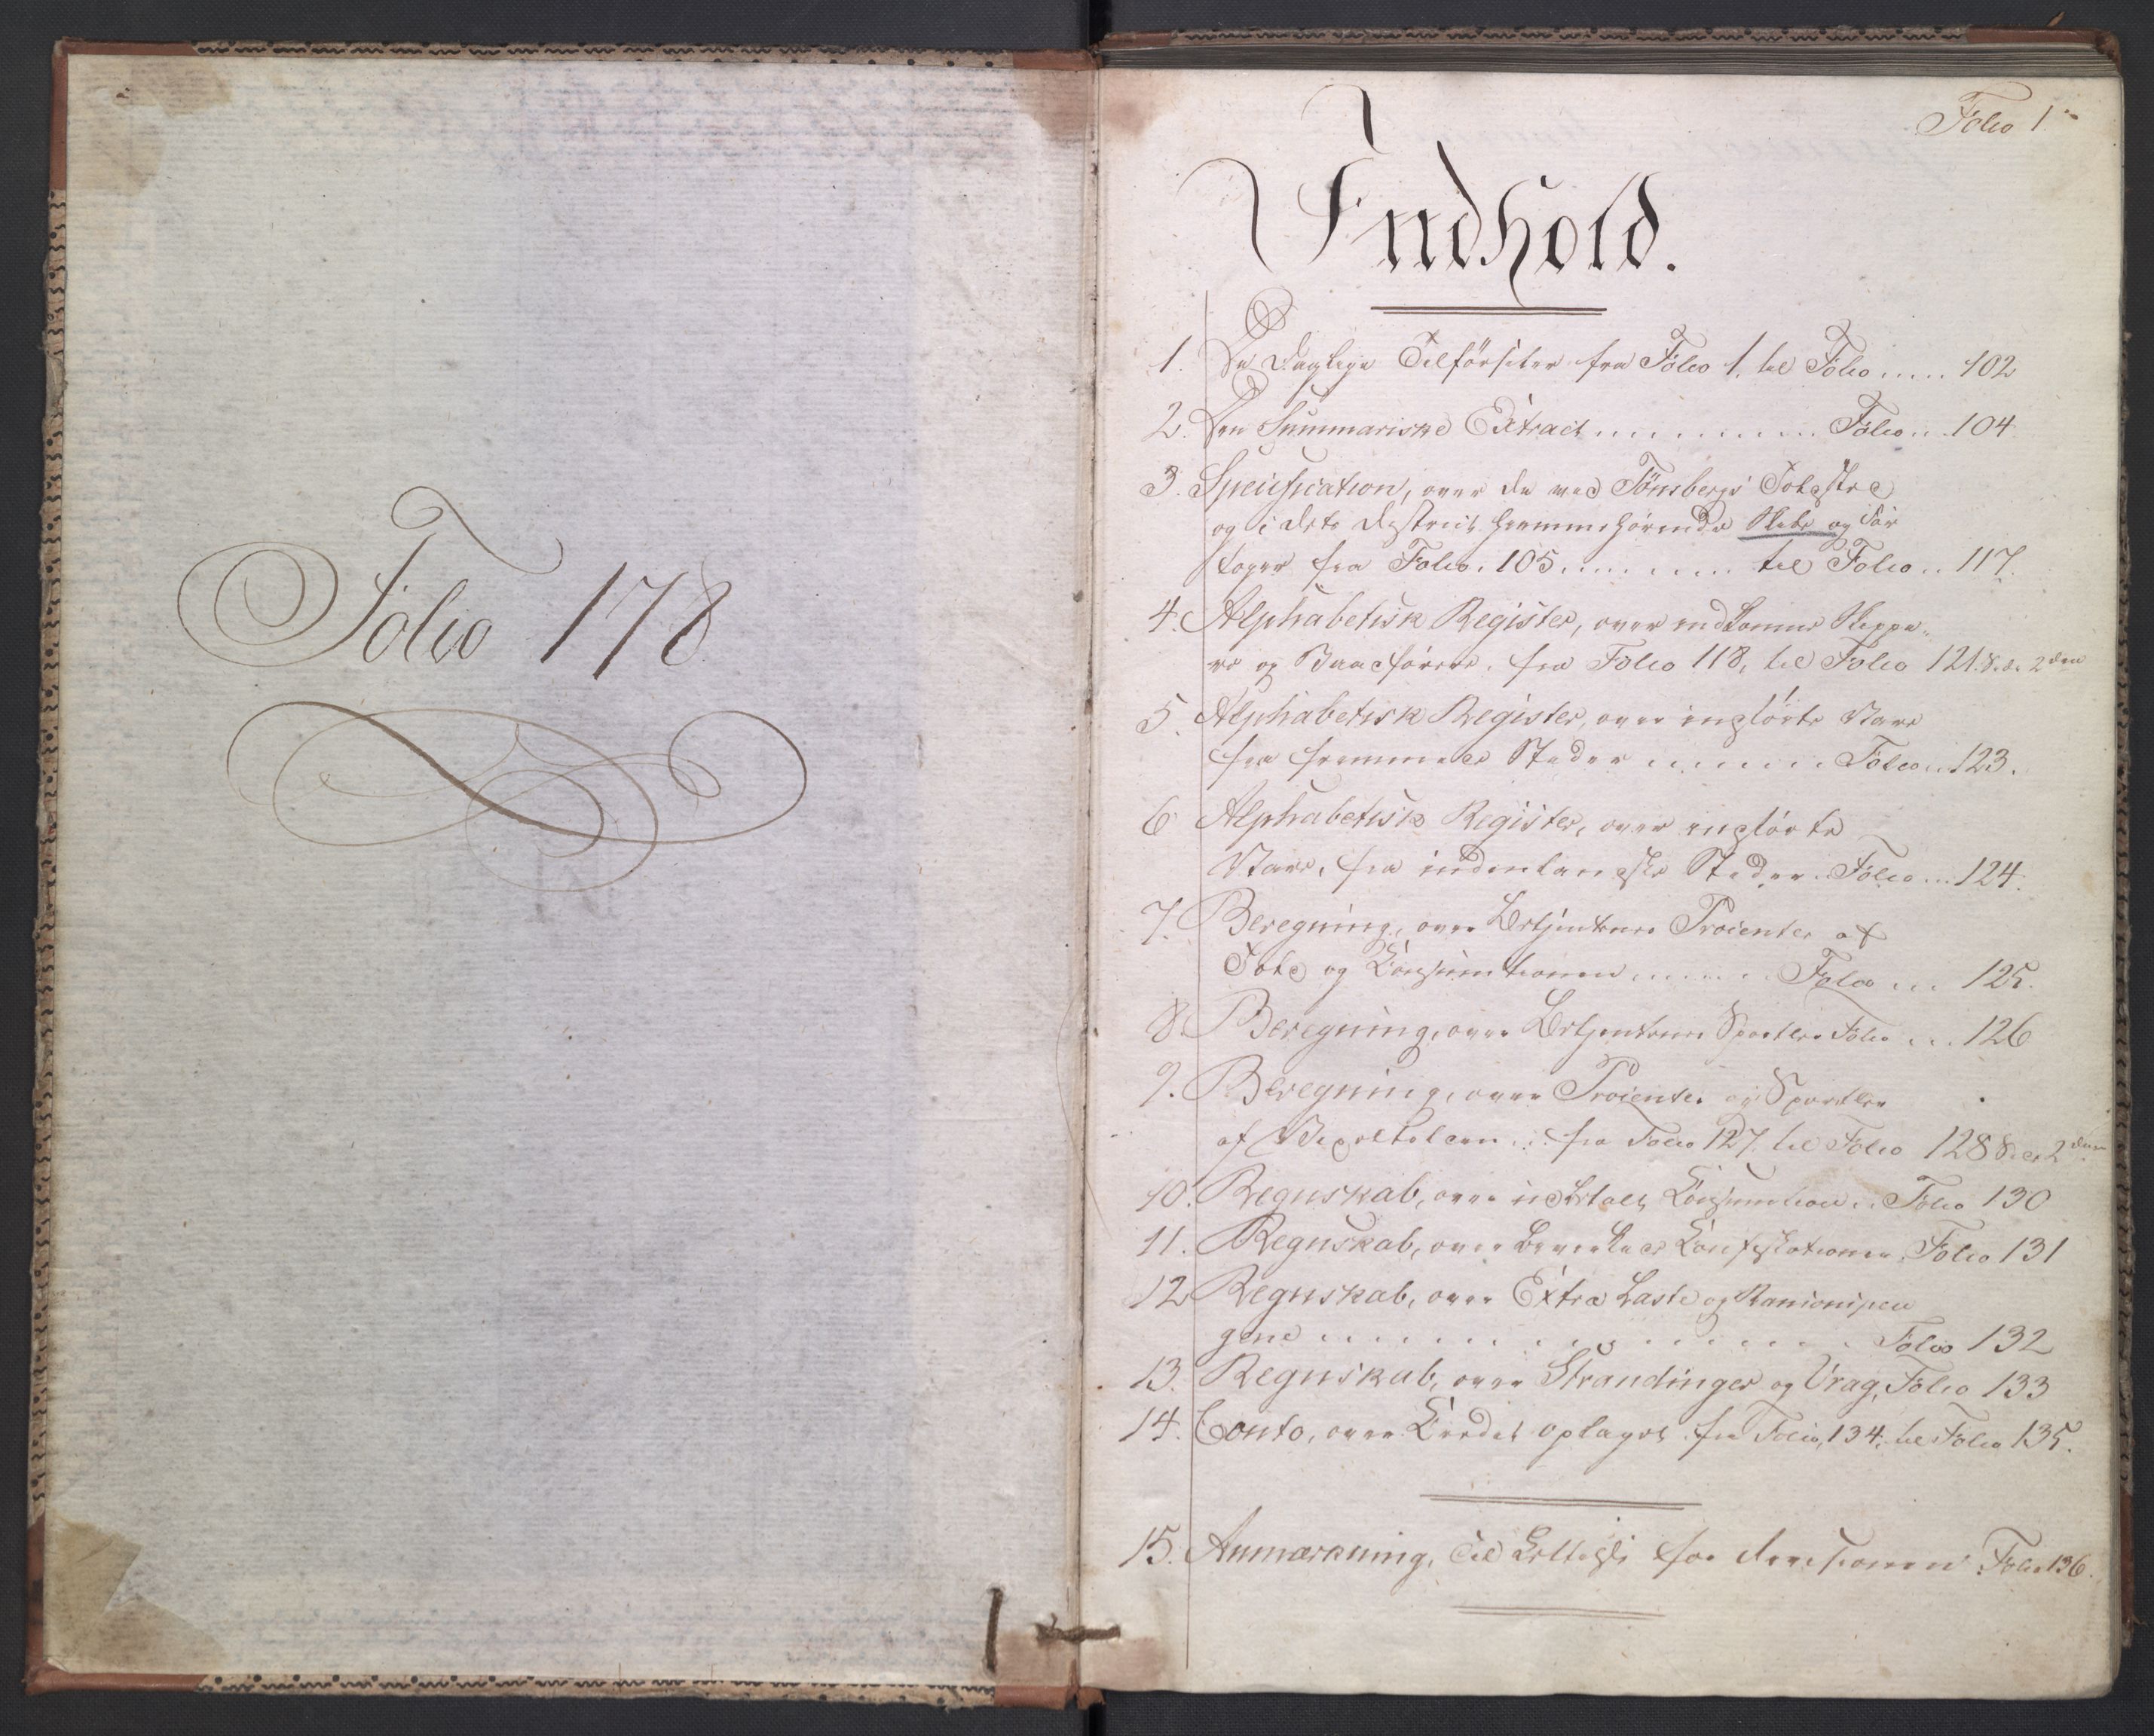 Folio 178
Folio 1
Indhold.
1. De Daglige Tilførsler fra Folio 1. til Folio ..... 102
2. Den Summariske Extract ............ Folio ... 104
3. Specification, over de ved Tönsbergs Toldsted
og i dets District hiemmehørende Skibe og Far
tøyer fra Folio. 105 .......... til Folio .. 117.
4. Alphabetisk Register, over indkomne Skippe-
re og Baadførere. fra Folio 118, til Folio 121. Side 2den
5. Alphabetisk Register, over indførte Vare
fra fremmede Steder ........ Folio .. 123.
6 Alphabetisk Register, over indførte
Vare, fra indenlandske Steder. Folio ... 124.
7. Beregning, over Betjentenes Procenter af
Told og Consumtionen ....... Folio ... 125.
8. Beregning, over Betjentenes Sportler Folio ... 126
9. Beregning, over Procenter og Sportler
af ... fra Folio 127. til Folio 128 Side 2den
10. Regnskab, over indbetalt Consumtion .. Folio 130
11. Regnskab, over bevirkede Confiskationer Folio 131
12 Regnskab, over Extra Laste og Ranionspen
gene .................. Folio 132
13. Regnskab, over Strandinger og Vrag, Folio 133
14. Conto, over Credit oplaget fra Folio, 134, til Folio 135.
15. Anmærkning, til for Folio 136.